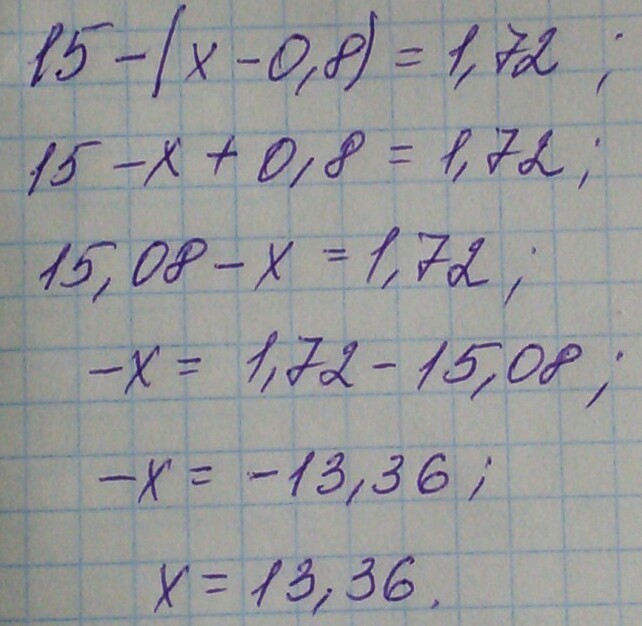 15 - (x - 0,8) = 1,72 ;
15 - x + 0,8 = 1,72 ;
15,08 - x = 1,72 ;
-x = 1,72 - 15,08 ;
-x = -13,36 ;
x = 13,36 .